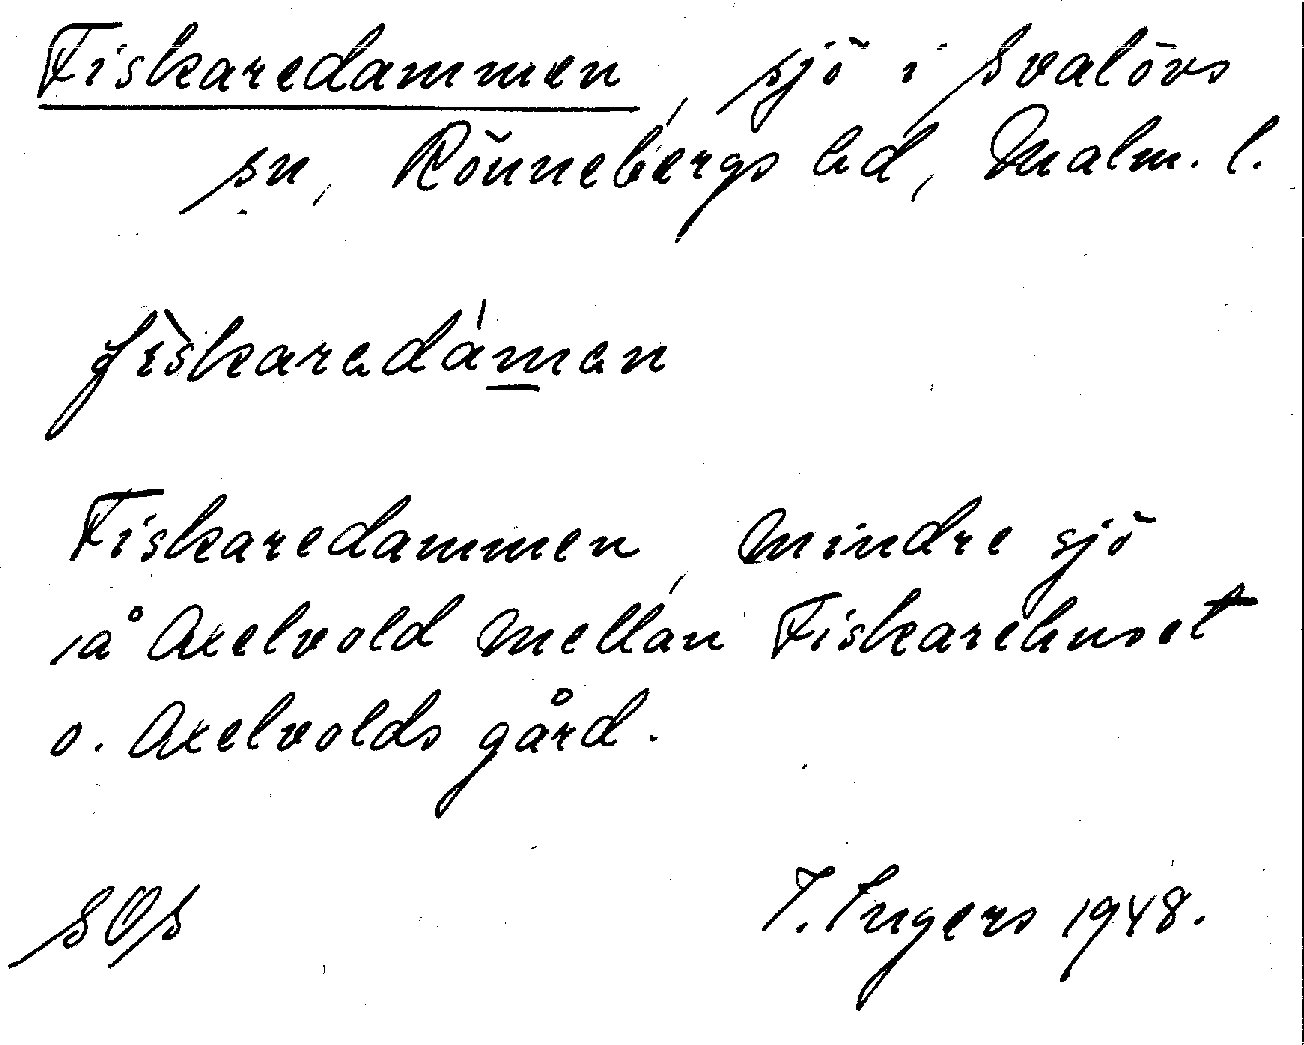 Fiskaredammen, sjö i Svalövs
sn, Rönnebergs hd, Malm. l.
fìskaredámen
Fiskaredammen, mindre sjö
å Axelvold mellan Fiskarehuset
o. Axelvolds gård.
SOS
I. Ingers 1948.